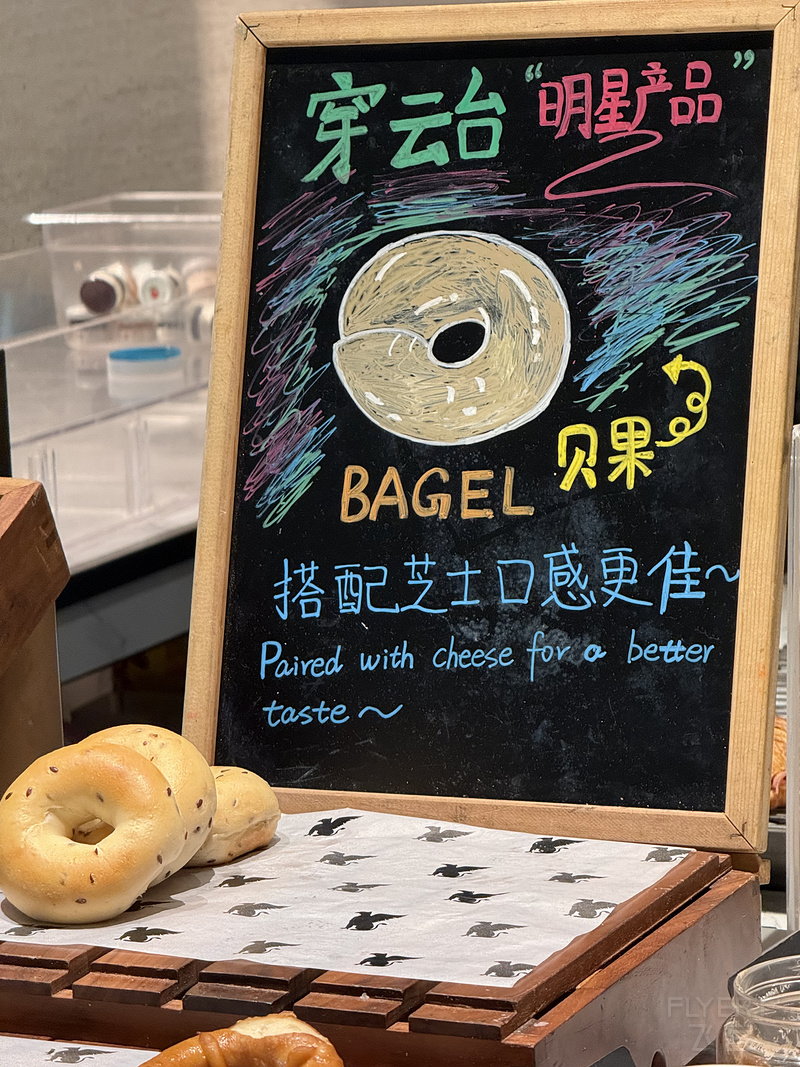 穿云台 “明星产品”
贝果
BAGEL
搭配芝士口感更佳～
Paired with cheese for a better
taste ～